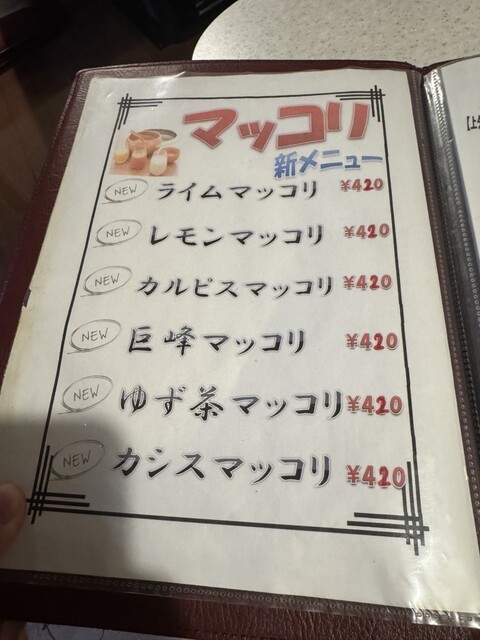 マッコリ
新メニュー
NEW ライムマッコリ ¥420
NEW レモンマッコリ ¥420
NEW カルピスマッコリ ¥420
NEW 巨峰マッコリ ¥420
NEW ゆず茶マッコリ ¥420
NEW カシスマッコリ ¥420